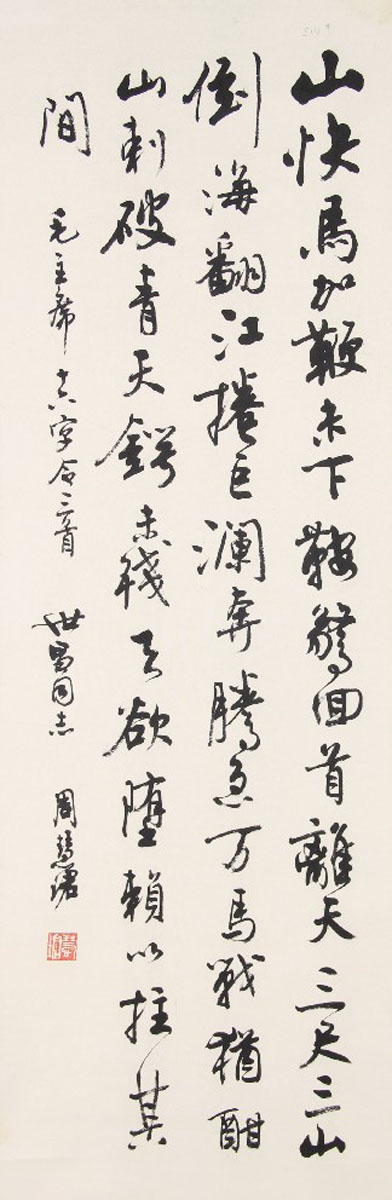 山快馬加鞭未下鞍驚回首離天三尺三山
倒海翻江捲巨瀾奔騰急万馬戰猶酣
山刺破青天鍔未殘天欲墮賴以拄其
間 毛主席十六字令三首 世昌同志 周慧珺